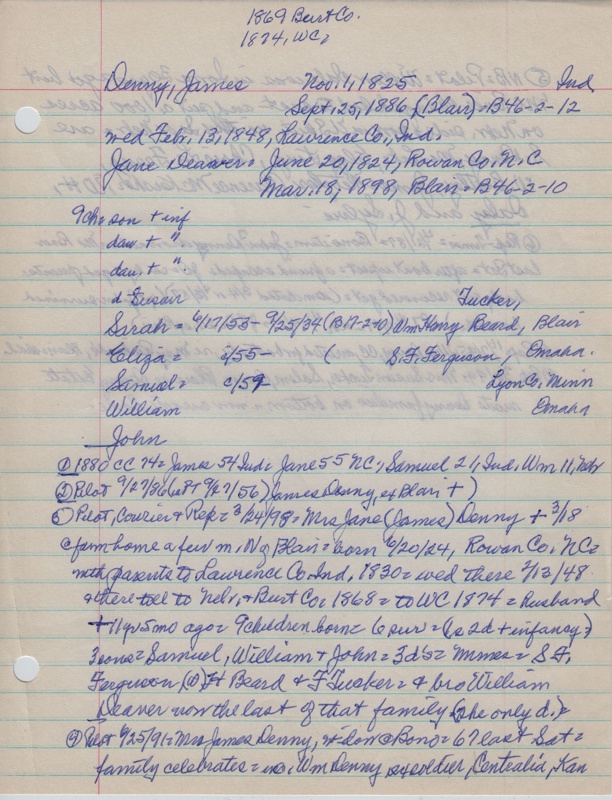 1869 Burt Co.
1874, WC,
Denny, James Nov. 1, 1825 Ind
Sept. 25, 1886, (Blair) = B46-2-12
wed Febr. 13, 1848, Lawrence Co., Ind.
Jane Deaver = June 20, 1824, Rowan Co., N.C
Mar. 18, 1898, Blair = B46-2-10
9ch = son + inf
dau + "
dau. + "
d Susan Tucker,
Sarah = 6/17/53 - 9/25/34 (B17-2-10) Wm Henry Beard, Blair
Eliza = c/55 - ( S.F. Ferguson, Omaha.
Samuel = c/59 Lyon Co, Minn
William Omaha
John
① 1880 CC 74 = James 54 Ind = Jane 55 NC, Samuel 21, Ind, Wm 11, Nebr
② Pilot 9/27/86 James Denny, Blair + )
③ Pilot, Courier & Rep = 3/24/98 = Mrs Jane (James) Denny + 3/18
@ farm home a few m. N of Blair = born 6/20/24, Rowan Co. NC =
with parents to Lawrence Co. Ind, 1830 = wed there 2/13/48
& there to Nebr, & Burt Co. 1868 = to WC 1874 = Husband
+ 11 yr 5 mo ago = 9 children born = 6 sur = (1s 2d + infancy =)
3 sons = Samuel, William & John = 3 d's = Mmes = S.F.
Ferguson (O) FH Beard & F Tucker = & bro William
Deaver now the last of that family (she only d.) =
④ Pilot 6/25/91 = Mrs James Denny, widow @ Bono = 67 last Sat =
family celebrates = Wm Denny soldier, Centralia, Kan